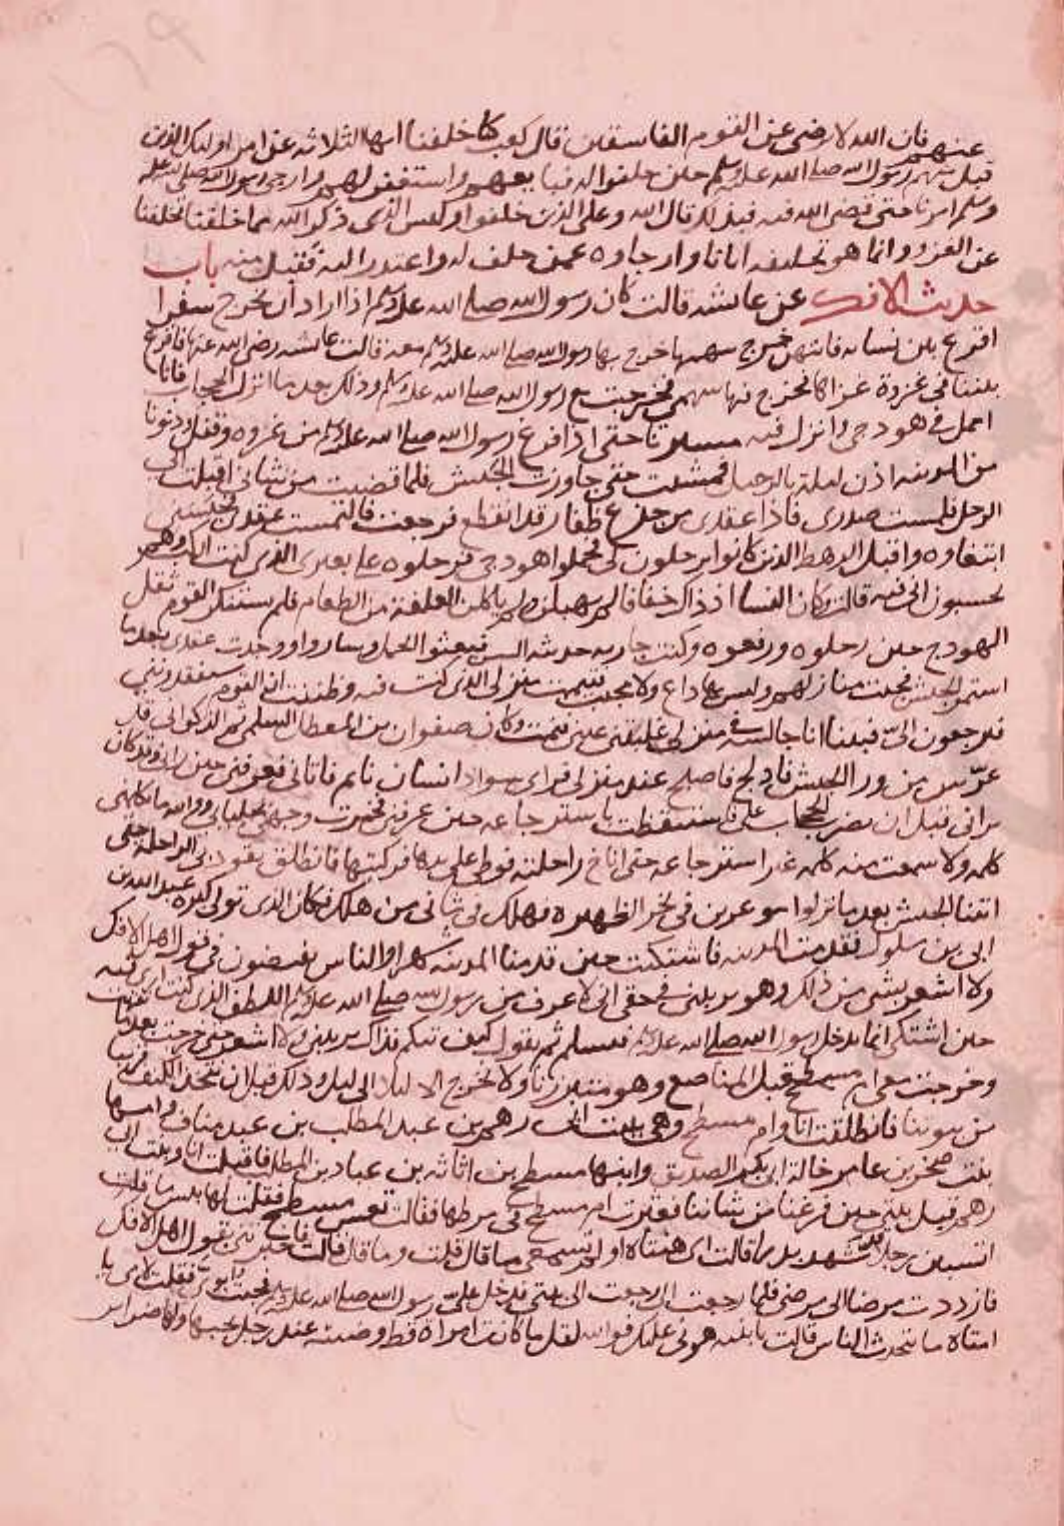 عنهم فان الله لا يرضى عن القوم الفاسقين قال كعب كنا خلفنا ايها الثلاثه عن امر اولئك الذين
قبل منهم رسول الله صلى الله عليه وسلم حين حلفوا له فبايعهم واستغفر لهم وارجى رسول الله صلى الله عليه
وسلم امرنا حتى قضى الله فيه فبذلك قال الله وعلى الذين خلفوا وليس الذى ذكر الله مما خلفنا تخلفنا
عن الغزو وانما هو تخليفه ايانا وارجاوه عمن حلف له واعتذر اليه فقبل منه باب
حديث الافك عن عائشه قالت كان رسول الله صلى الله عليه وسلم اذا اراد ان يخرج سفرا
اقرع بين نسائه فايتهن خرج سهمها خرج بها رسول الله صلى الله عليه وسلم معه قالت عائشه رضى الله عنها فاقرع
بيننا فى غزوة غزاها فخرج فيها سهمى فخرجت مع رسول الله صلى الله عليه وسلم وذلك بعد ما انزل الحجاب فانا
احمل فى هودجى وانزل فيه مسيرنا حتى اذا فرغ رسول الله صلى الله عليه وسلم من غزوه وقفل ودنونا
من المدينه اذن ليلة بالرحيل فمشيت حتى جاوزت الجيش فلما قضيت من شانى اقبلت الى
الرحل فلمست صدرى فاذا عقدى من جزع ظفار قد انقطع فرجعت فالتمست عقدى فحبسنى
ابتغاوه واقبل الرهط الذين كانوا يرحلون لى فحملوا هودجى فرحلوه على بعيرى الذى كنت اركب وهم
يحسبون انى فيه قالت وكان النساء اذ ذاك خفافا لم يهبلن ولم ياكلن العلقة من الطعام فلم يستنكر القوم ثقل
الهودج حين رحلوه ورفعوه وكنت جاريه حديثه السن فبعثوا الجمل وساروا ووجدت عقدى بعد ما
استمر الجيش فجئت منازلهم وليس بها داع ولا مجيب فتيممت منزلى الذى كنت فيه وظننت ان القوم سيفقدوننى
فيرجعون الى فبينا انا جالسه فى منزلى غلبتنى عينى فنمت وكان صفوان بن المعطل السلمى ثم الذكوانى قد
عرّس من ورا الجيش فادلج فاصبح عند منزلى فراى سواد انسان نائم فاتانى فعرفنى حين رانى وقد كان
يرانى قبل ان يضرب الحجاب على فاستيقظت باسترجاعه حين عرفنى فخمرت وجهى بجلبابى ووالله ما كلمنى
كلمه ولا سمعت منه كلمه غير استرجاعه حتى اناخ راحلته فوطى على يدها فركبتها فانطلق يقود بى الراحله حتى
اتينا الجيش بعد ما نزلوا موغرين فى نحر الظهيره فهلك فى شانى من هلك وكان الذى تولى كبره عبد الله بن
ابى بن سلول فقدمت المدينه فاشتكيت حين قدمنا المدينه شهرا والناس يفيضون فى قول اهل الافك
ولا اشعر بشى من ذلك وهو يريبنى فى وجعى انى لا اعرف من رسول الله صلى الله عليه وسلم اللطف الذى كنت ارى منه
حين اشتكى انما يدخل رسول الله صلى الله عليه وسلم فيسلم ثم يقول كيف تيكم فذاك يريبنى ولا اشعر حتى خرجت بعد ما نقهت
وخرجت مع ام مسطح قبل المناصع وهو متبرزنا ولا نخرج الا ليلا الى ليل وذلك قبل ان نتخذ الكنف قريبا
من بيوتنا فانطلقت انا وام مسطح وهى بنت ابى رهم بن عبد المطلب بن عبد مناف وامها
بنت صخر بن عامر خالة ابى بكر الصديق وابنها مسطح بن اثاثه بن عباد بن المطلب فاقبلت انا وبنت ابى
رهم قبل بيتى حين فرغنا من شاننا فعثرت ام مسطح فى مرطها فقالت تعس مسطح فقلت لها بئس ما قلت
اتسبين رجلا قد شهد بدرا قالت اى هنتاه اولم تسمعى ما قال قلت وما قال قالت فاخبرتنى بقول اهل الافك
فازددت مرضا الى مرضى فلما رجعت الى بيتى فدخل علىّ رسول الله صلى الله عليه وسلم فجئت ابوىّ فقلت لامى يا
امتاه ما يتحدث الناس قالت يا بنيه هونى عليك فوالله لقل ما كانت امراة قط وضيئه عند رجل يحبها ولها ضرائر